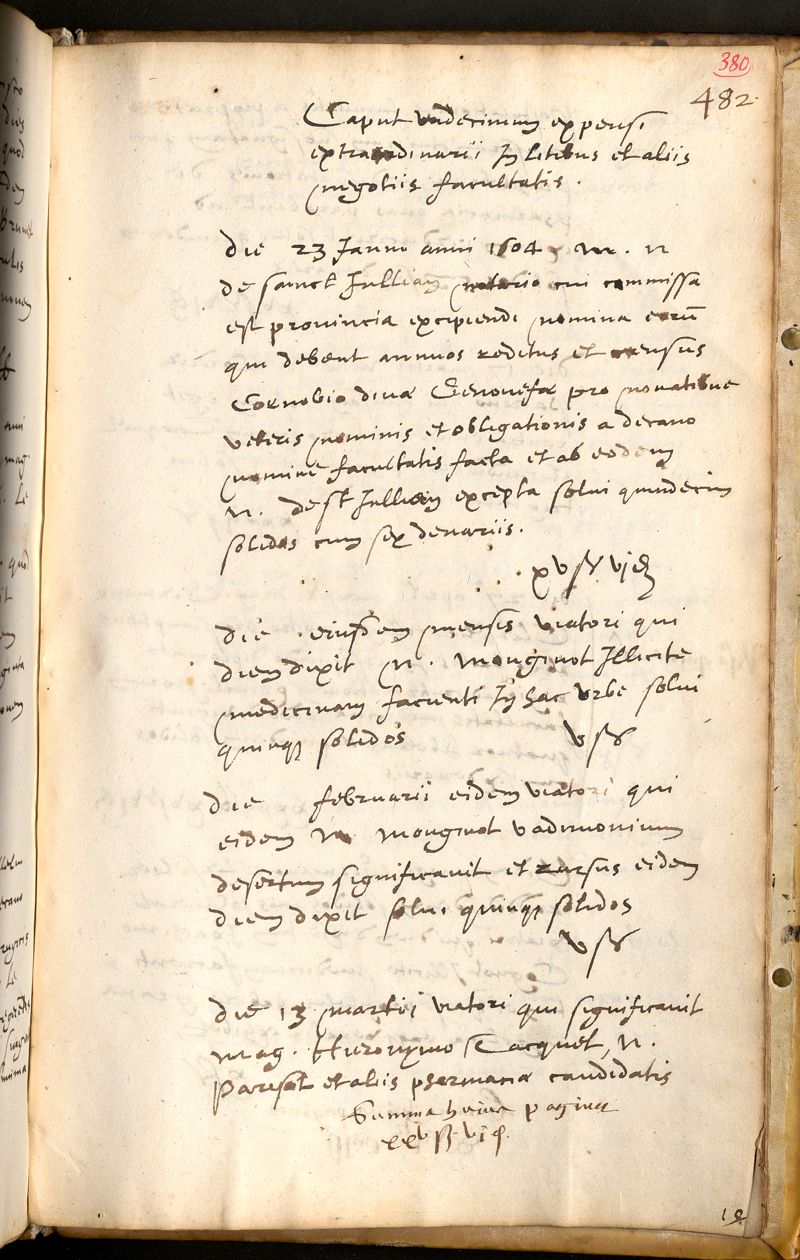 380
482.
Caput undecimum expensi
extraordinarii In litibus et aliis
negotiis facultatis.
Die 23 Janu anni 1604 M. N
de sanct Jullian notario cui commissa
est provincia excipiendi nomina eorū
qui debent annuos reditus et census
Coenobio divae Genovefae pro novatione
veteris nominis et obligationis a decano
nomine facultatis facta et ab eodem
N. de st Jullian excepta solui quindecim
solidos cum sex denariis.
xv s vj d
die eiusdem mensis viatori qui
diem dixit N. Mouginot Illicite
medicinam facienti In hac urbe solui
quinqz solidos v s
die februarii eidem viatori qui
eidem Mouginot vadimonium
desertum significavit et rursus eidem
diem dixit solui quinqz solidos
v s
die 13 martii viatori qui significavit
Mag. Hieronymo Cacquet, N.
Pariset et aliis pharmaciae candidatis
Summa huius paginae
xxv s vi d.